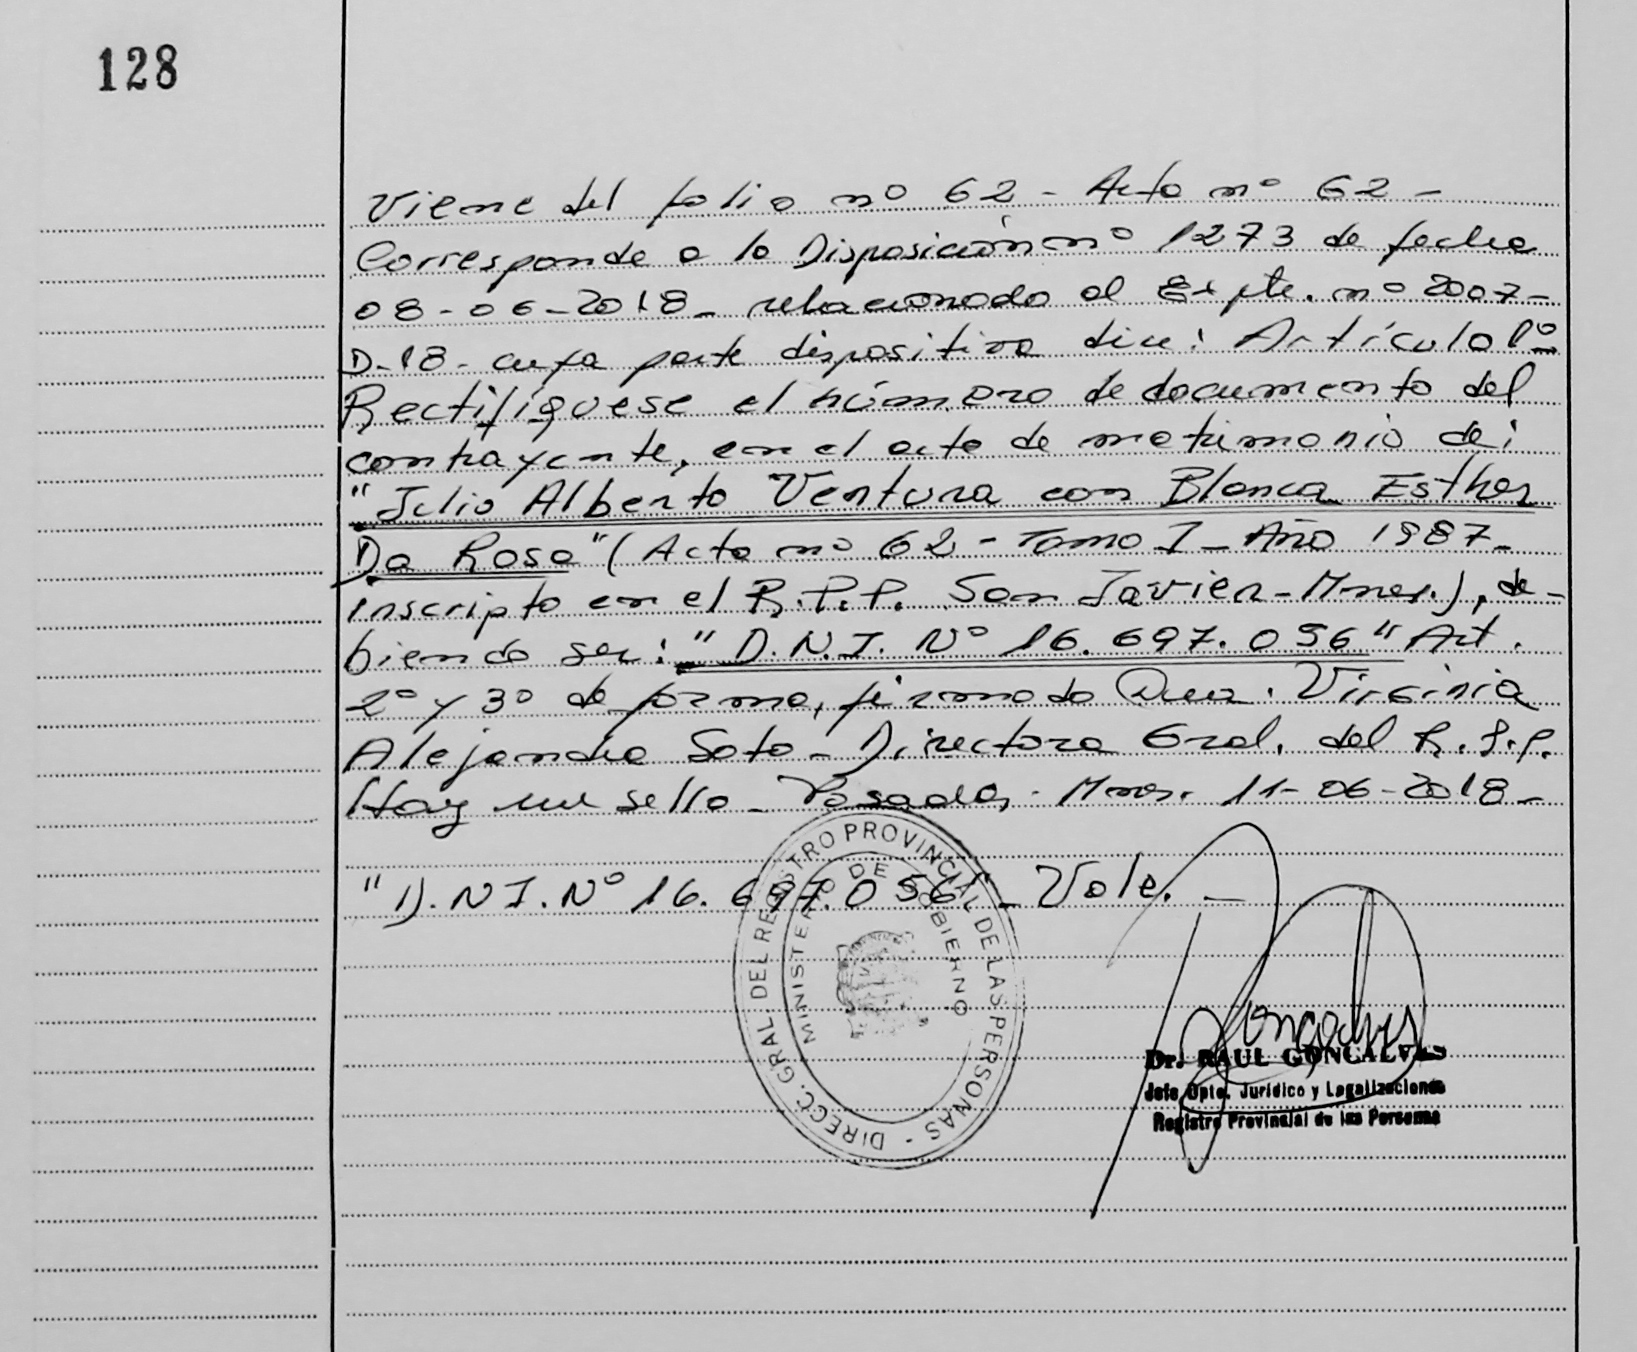 128
Viene del folio nº 62 - Acta nº 62 -
Corresponde a la Disposición nº 1273 de fecha
08-06-2018- relacionado al Expte. nº 2007-
D-18- cuya parte dispositiva dice: Artículo 1º
Rectifíquese el número de documento del
contrayente, en el acta de matrimonio de:
"Julio Alberto Ventura con Blanca Esther
Da Rosa" (Acta nº 62 - Tomo I - Año 1987-
inscripto en el R.P.P. San Javier-Mnes.), de-
biendo ser: "D.N.I. Nº 16.697.056" Art.
2º y 3º de forma, firmado Virginia
Alejandra Soto - Directora Gral. del R.P.P.
Hay un sello - Posadas - Mnes. 11-06-2018-
"D.N.I. Nº 16.697.056" - Vale. -
DIRECC. GRAL. DEL REGISTRO PROVINCIAL DE LAS PERSONAS -
MINISTERIO DE GOBIERNO
Goncalves
Dr. RAUL GONCALVES
Jefe Dpto. Jurídico y Legalizaciones
Registro Provincial de las Personas